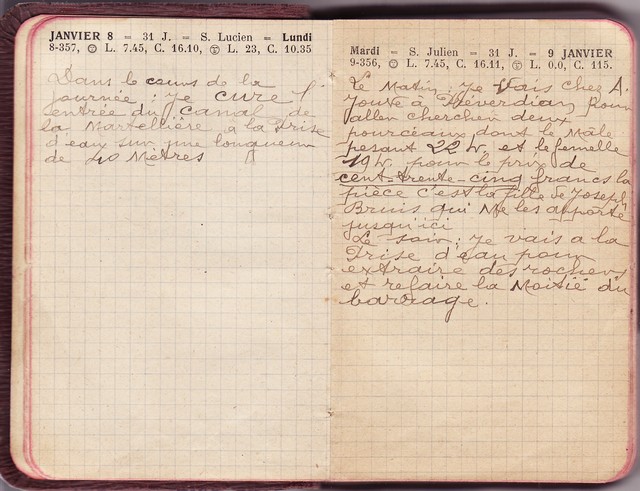 JANVIER 8 = 31 J. = S. Lucien = Lundi
8-357, L. 7.45, C. 16.10, L. 23, C. 10.35
Dans le cours de la
journée : Je cure l'
entrée du Canal de
la Martellière a la Prise
d'eau sur une longueur
de 40 Mètres
Mardi = S. Julien = 31 J. = 9 JANVIER
9-356, L. 7.45, C. 16.11, L. 0.0, C. 115.
Le Matin : Je Vais chez A.
à pour
aller chercher deux
pourceaux dont le Mâle
pesant 22 k. et le femelle
19 k. pour le prix de
cent-trente-cinq francs la
pièce c'est la fille de Joseph
Bruis qui Me les apporte
jusqu'ici
Le soir : Je vais a la
Prise d'eau pour
extraire des rochers
et refaire la Moitié du
barrage.